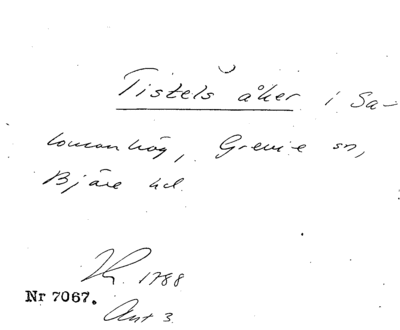 Tistels åker i Sa-
lomonhög, Grevie sn,
Bjäre hd.
1788
Nr 7067.
Akt 3